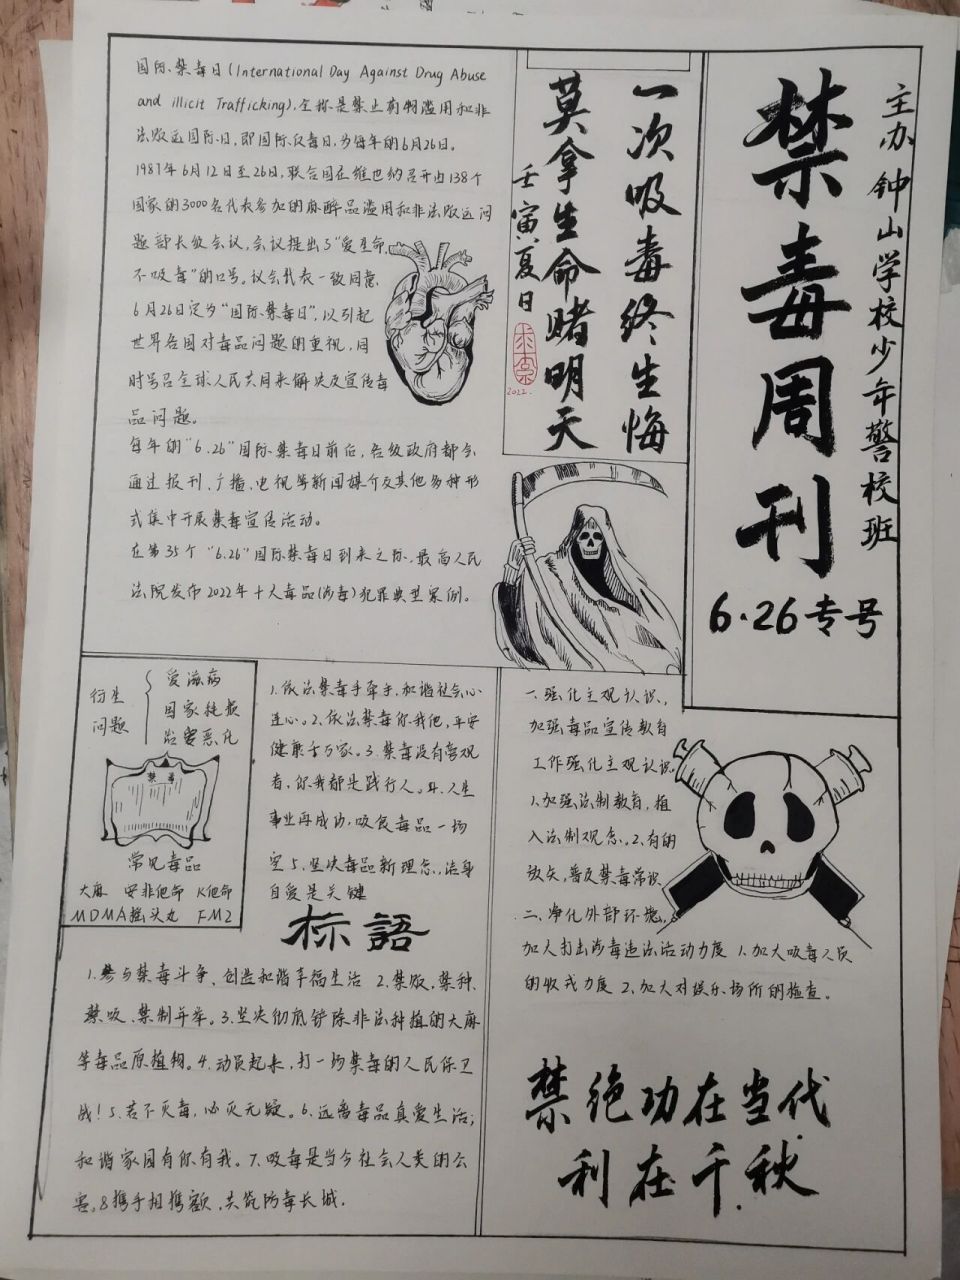 主办 钟山学校少年警校班
禁毒周刊
6·26专号
一次吸毒终生悔
莫拿生命赌明天
壬寅夏日
2022.
国际禁毒日(International Day Against Drug Abuse
and illicit Trafficking),全称是禁止药物滥用和非
法贩运国际日,即国际反毒日,为每年的6月26日。
1987年6月12日至26日,联合国在维也纳召开由138个
国家的3000名代表参加的麻醉品滥用和非法贩运问
题部长级会议,会议提出了“爱生命,
不吸毒”的口号。议会代表一致同意
6月26日定为“国际禁毒日”,以引起
世界各国对毒品问题的重视,同
时号召全球人民共同来解决及宣传毒
品问题。
每年的“6.26”国际禁毒日前后,各级政府都会
通过报刊、广播、电视等新闻媒介及其他多种形
式集中开展禁毒宣传活动。
在第35个“6.26”国际禁毒日到来之际,最高人民
法院发布2022年十大毒品(涉毒)犯罪典型案例。
衍生
问题
爱滋病
国家耗损
治安恶化
禁毒
常见毒品
大麻 安非他命 K他命
MDMA摇头丸 FM2
1.依法禁毒手牵手,和谐社会心
连心。2.依法禁毒你我他,平安
健康千万家。3.禁毒没有旁观
者,你我都是践行人。4.人生
事业再成功,吸食毒品一场
空 5.坚决毒品新理念,洁身
自爱是关键
标語
1.参与禁毒斗争、创造和谐幸福生活 2.禁贩,禁种,
禁吸、禁制并举。3.坚决彻底铲除非法种植的大麻
等毒品原植物。4.动员起来,打一场禁毒的人民保卫
战!5.若不灭毒,必灭无疑。6.远离毒品真爱生活;
和谐家园有你有我。7.吸毒是当今社会人类的公
害。8携手相携额,共筑防毒长城.
一.强化主观认识,
加强毒品宣传教育
工作强化主观认识.
1.加强法制教育,植
入法制观念。2.有的
放矢,普及禁毒常识
二、净化外部环境,
加大打击涉毒违法活动力度 1.加大吸毒人员
的收戒力度 2.加大对娱乐场所的检查。
禁绝功在当代
利在千秋